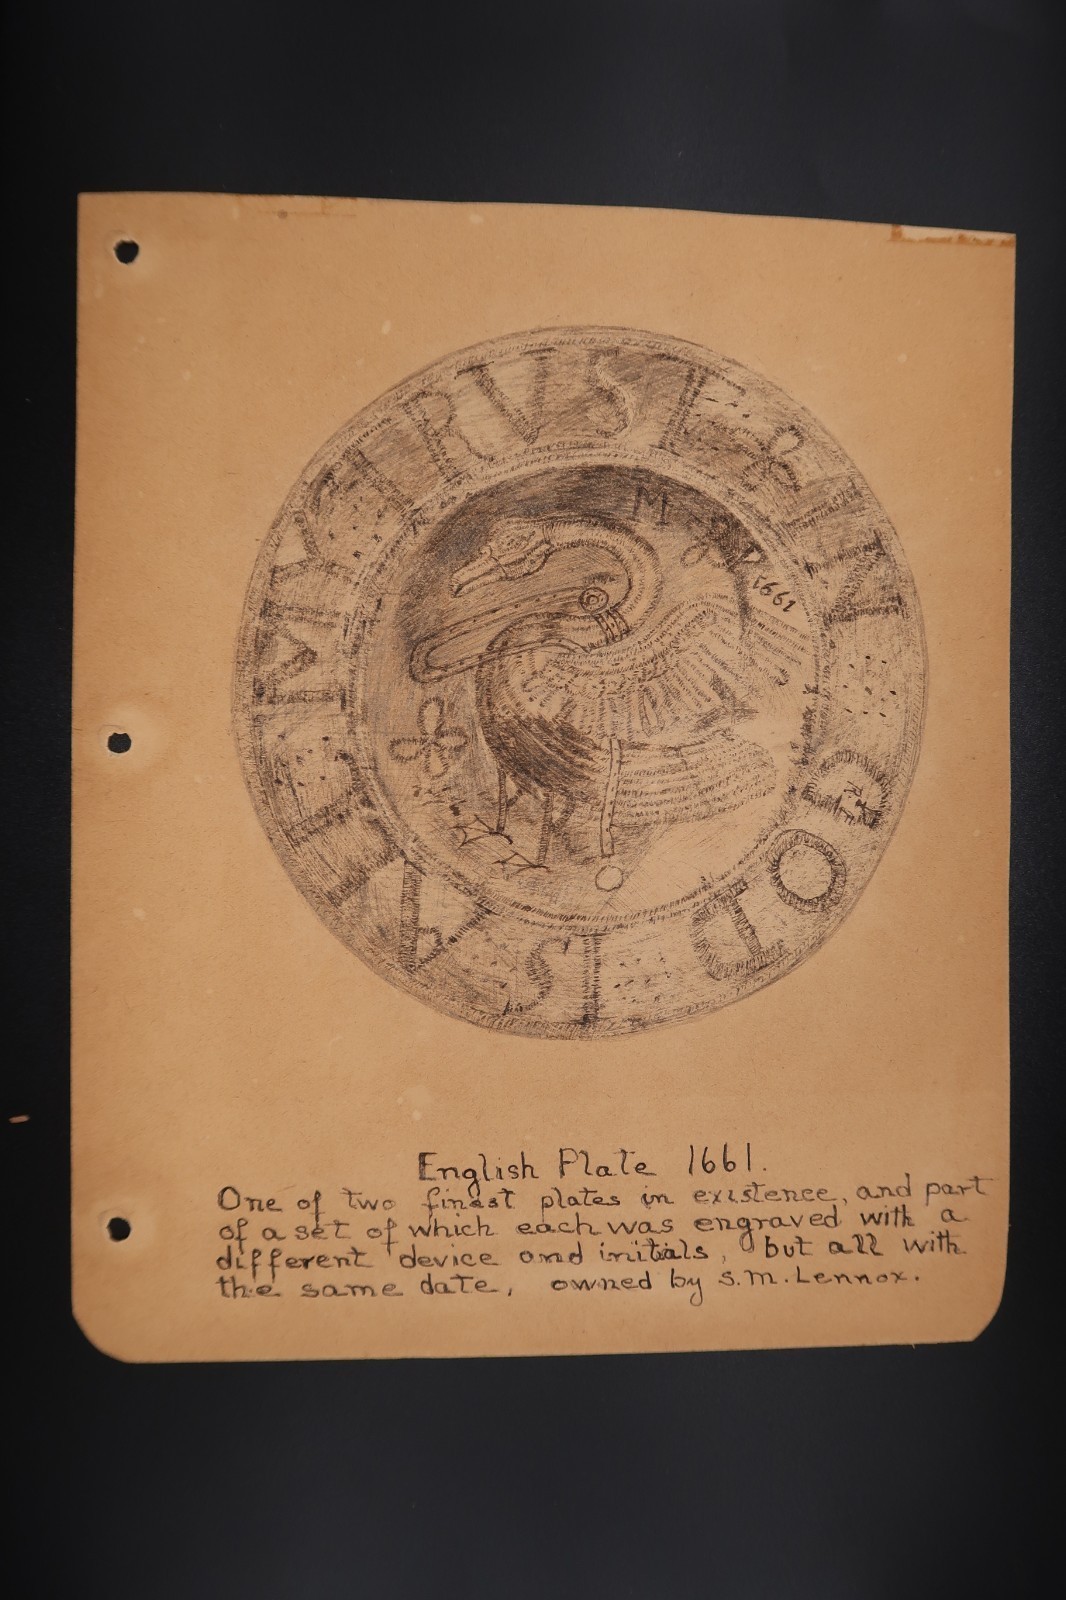 IN GOD IS MY TRVST
M
1661
English Plate 1661.
One of two finest plates in existence, and part
of a set of which each was engraved with a
different device and initials, but all with
the same date, owned by S.M. Lennox.